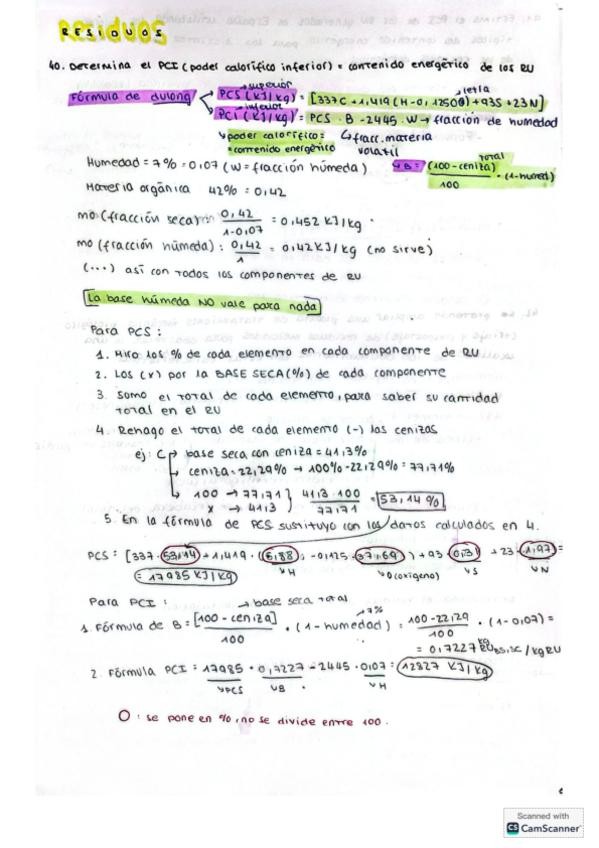 RESIDUOS
40. Determina el PCI (poder calorífico inferior) = contenido energético de los RU
Fórmula de dulong
superior
PCS (KJ/kg) = [337C + 1,419 (H - 0,125O8) + 93S + 23N]
inferior
PCI (KJ/kg) = PCS · B - 2445 · W → fracción de humedad
↳ poder calorífico = contenido energético
↳ fracc. materia volatil
total
↳ B = (100 - ceniza) / 100 · (1 - humed)
Humedad = 7% = 0,07 (W = fracción húmeda)
Materia orgánica 42% = 0,42
mo (fracción seca) = 0,42 / 1-0,07 = 0,452 KJ/kg
mo (fracción húmeda) : 0,42 / 1 = 0,42 KJ/kg (no sirve)
(...) así con todos los componentes de RU
La base húmeda NO vale para nada
Para PCS :
1. Miro los % de cada elemento en cada componente de RU
2. Los (x) por la BASE SECA (%) de cada componente
3. Somo el total de cada elemento, para saber su cantidad
total en el RU
4. Rehago el total de cada elemento (-) las cenizas
ej: C → base seca con ceniza = 41,3%
→ ceniza = 22,29% → 100% - 22,29% = 77,71%
→ 100 → 77,71
x → 41,3 } 41,3 · 100 / 77,71 = 53,14%
5. En la fórmula de PCS sustituyo con los datos calculados en 4.
PCS = [337 · 53,14 + 1,419 · (6,88 - 0,125 · 37,69) + 93 · 0,31 + 23 · 1,97] =
↳H ↳O (oxígeno) ↳S ↳N
= 17985 KJ/kg
Para PCI : → base seca total
1. Fórmula de B = [100 - ceniza] / 100 · (1 - humedad) = 100 - 22,29 / 100 · (1 - 0,07) =
7%
= 0,7227 kg BS,SC / kg RU
2. Fórmula PCI = 17985 · 0,7227 - 2445 · 0,07 = 12827 KJ/kg
↳PCS ↳B ↳H
O : se pone en %, no se divide entre 100.
Scanned with
CS CamScanner